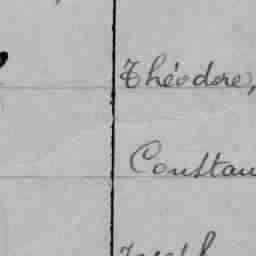 Théodore,
Constan